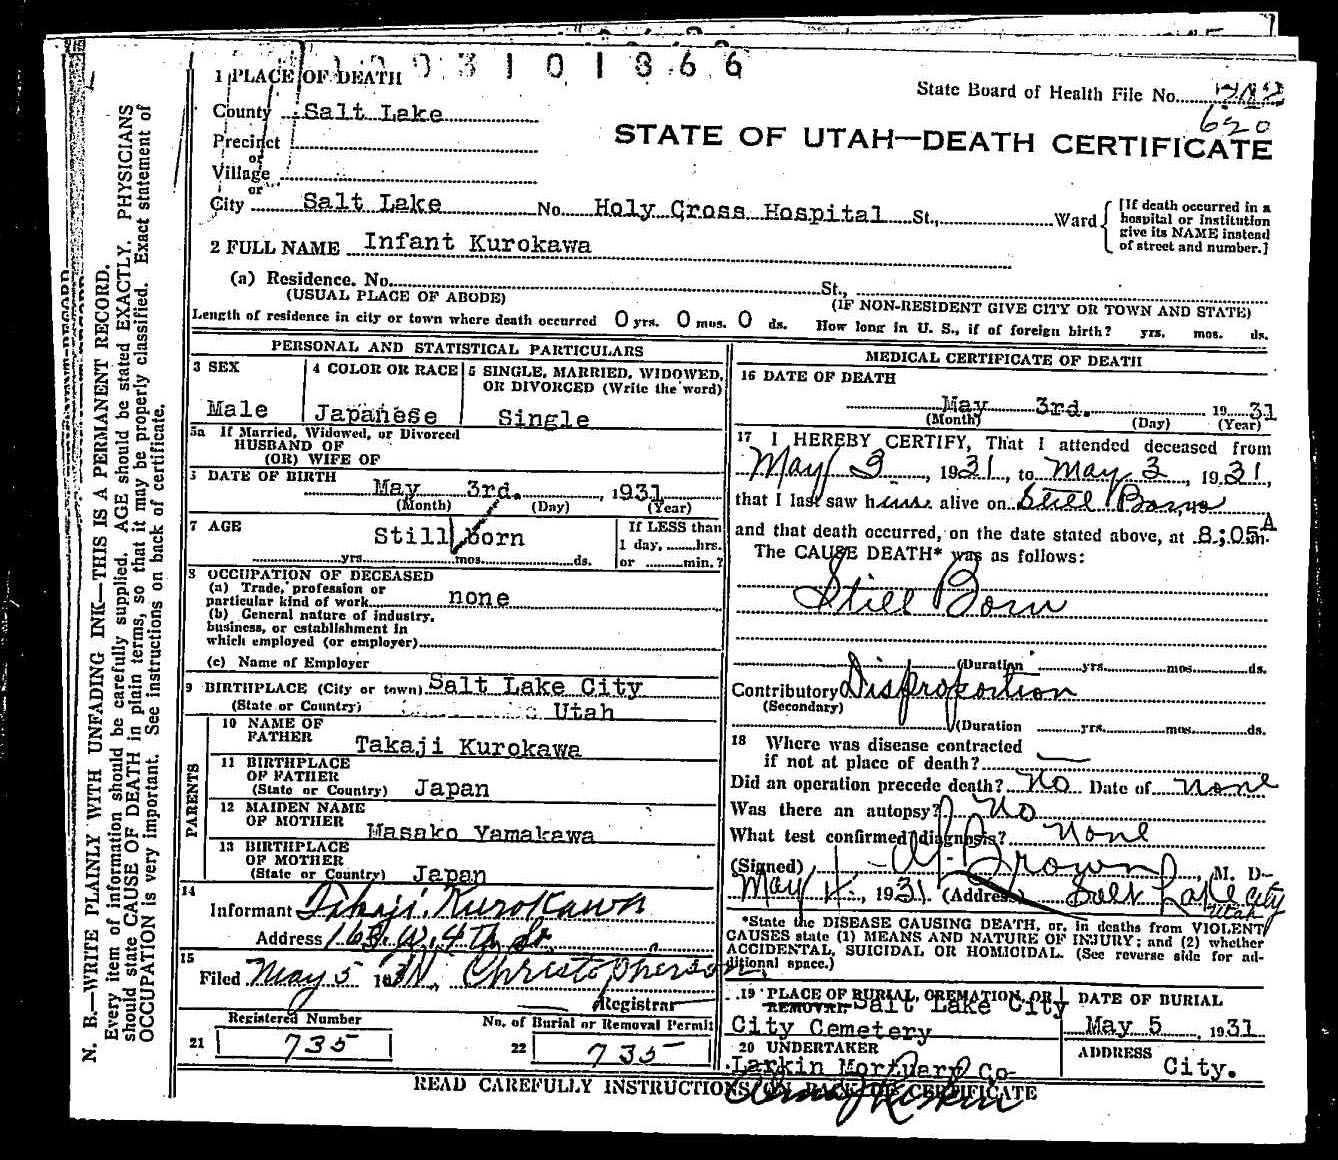 1003101866
1 PLACE OF DEATH
State Board of Health File No.
620
County Salt Lake
STATE OF UTAH—DEATH CERTIFICATE
Precinct
or
Village
or
City Salt Lake No. Holy Cross Hospital St., Ward
[If death occurred in a
hospital or institution
give its NAME instead
of street and number.]
2 FULL NAME Infant Kurokawa
(a) Residence. No. St.,
(USUAL PLACE OF ABODE) (IF NON-RESIDENT GIVE CITY OR TOWN AND STATE)
Length of residence in city or town where death occurred 0 yrs. 0 mos. 0 ds. How long in U. S., if of foreign birth? yrs. mos. ds.
PERSONAL AND STATISTICAL PARTICULARS
3 SEX
Male
4 COLOR OR RACE
Japanese
5 SINGLE, MARRIED, WIDOWED,
OR DIVORCED (Write the word)
Single
5a If Married, Widowed, or Divorced
HUSBAND OF
(OR) WIFE OF
6 DATE OF BIRTH
May 3rd. , 1931
(Month) (Day) (Year)
7 AGE
Still born
yrs. mos. ds.
If LESS than
1 day, hrs.
or min.?
8 OCCUPATION OF DECEASED
(a) Trade, profession or
particular kind of work none
(b) General nature of industry,
business, or establishment in
which employed (or employer)
(c) Name of Employer
9 BIRTHPLACE (City or town) Salt Lake City
(State or Country) Utah
PARENTS
10 NAME OF
FATHER Takaji Kurokawa
11 BIRTHPLACE
OF FATHER
(State or Country) Japan
12 MAIDEN NAME
OF MOTHER Masako Yamakawa
13 BIRTHPLACE
OF MOTHER
(State or Country) Japan
14
Informant Takaji Kurokawa
Address 163 W. 4th So.
15
Filed May 5 1931 N. Christopherson
Registrar
Registered Number
21 735
No. of Burial or Removal Permit
22 735
MEDICAL CERTIFICATE OF DEATH
16 DATE OF DEATH
May 3rd. 1931
(Month) (Day) (Year)
17 I HEREBY CERTIFY, That I attended deceased from
May 3, 1931, to May 3, 1931,
that I last saw him alive on Still Born
and that death occurred, on the date stated above, at 8:05 A m.
The CAUSE DEATH* was as follows:
Still Born
(Duration yrs. mos. ds.
Contributory Disproportion
(Secondary)
(Duration yrs. mos. ds.
18 Where was disease contracted
if not at place of death?
Did an operation precede death? No Date of None
Was there an autopsy? No
What test confirmed diagnosis? None
(Signed) Brown, M. D.
May 4, 1931. (Address) Salt Lake City
Utah
*State the DISEASE CAUSING DEATH, or, in deaths from VIOLENT
CAUSES state (1) MEANS AND NATURE OF INJURY; and (2) whether
ACCIDENTAL, SUICIDAL OR HOMICIDAL. (See reverse side for ad-
ditional space.)
19 PLACE OF BURIAL, CREMATION, OR
REMOVAL Salt Lake City
City Cemetery
DATE OF BURIAL
May 5, 1931
20 UNDERTAKER
Larkin Mortuary Co
ADDRESS
City.
READ CAREFULLY INSTRUCTIONS ON BACK OF CERTIFICATE
N. B.—WRITE PLAINLY WITH UNFADING INK—THIS IS A PERMANENT RECORD.
Every item of information should be carefully supplied. AGE should be stated EXACTLY. PHYSICIANS
should state CAUSE OF DEATH in plain terms, so that it may be properly classified. Exact statement of
OCCUPATION is very important. See instructions on back of certificate.